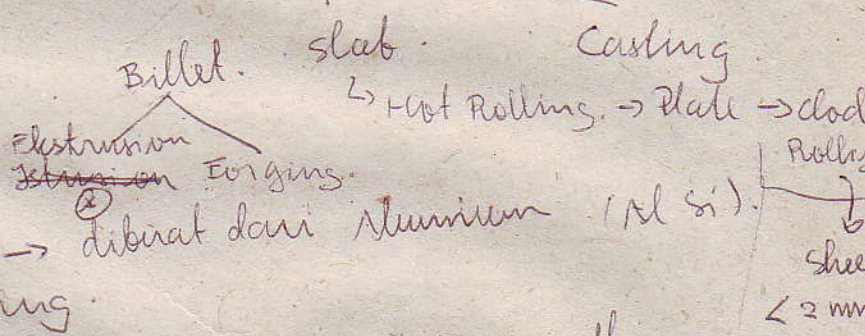 Billet. Slab. Casting.
↳ Hot Rolling. → Plate →
Ekstrusion Forging.
Rolling
→ dibuat dari Alumunium (Al Si).
Shee
< 2 mm